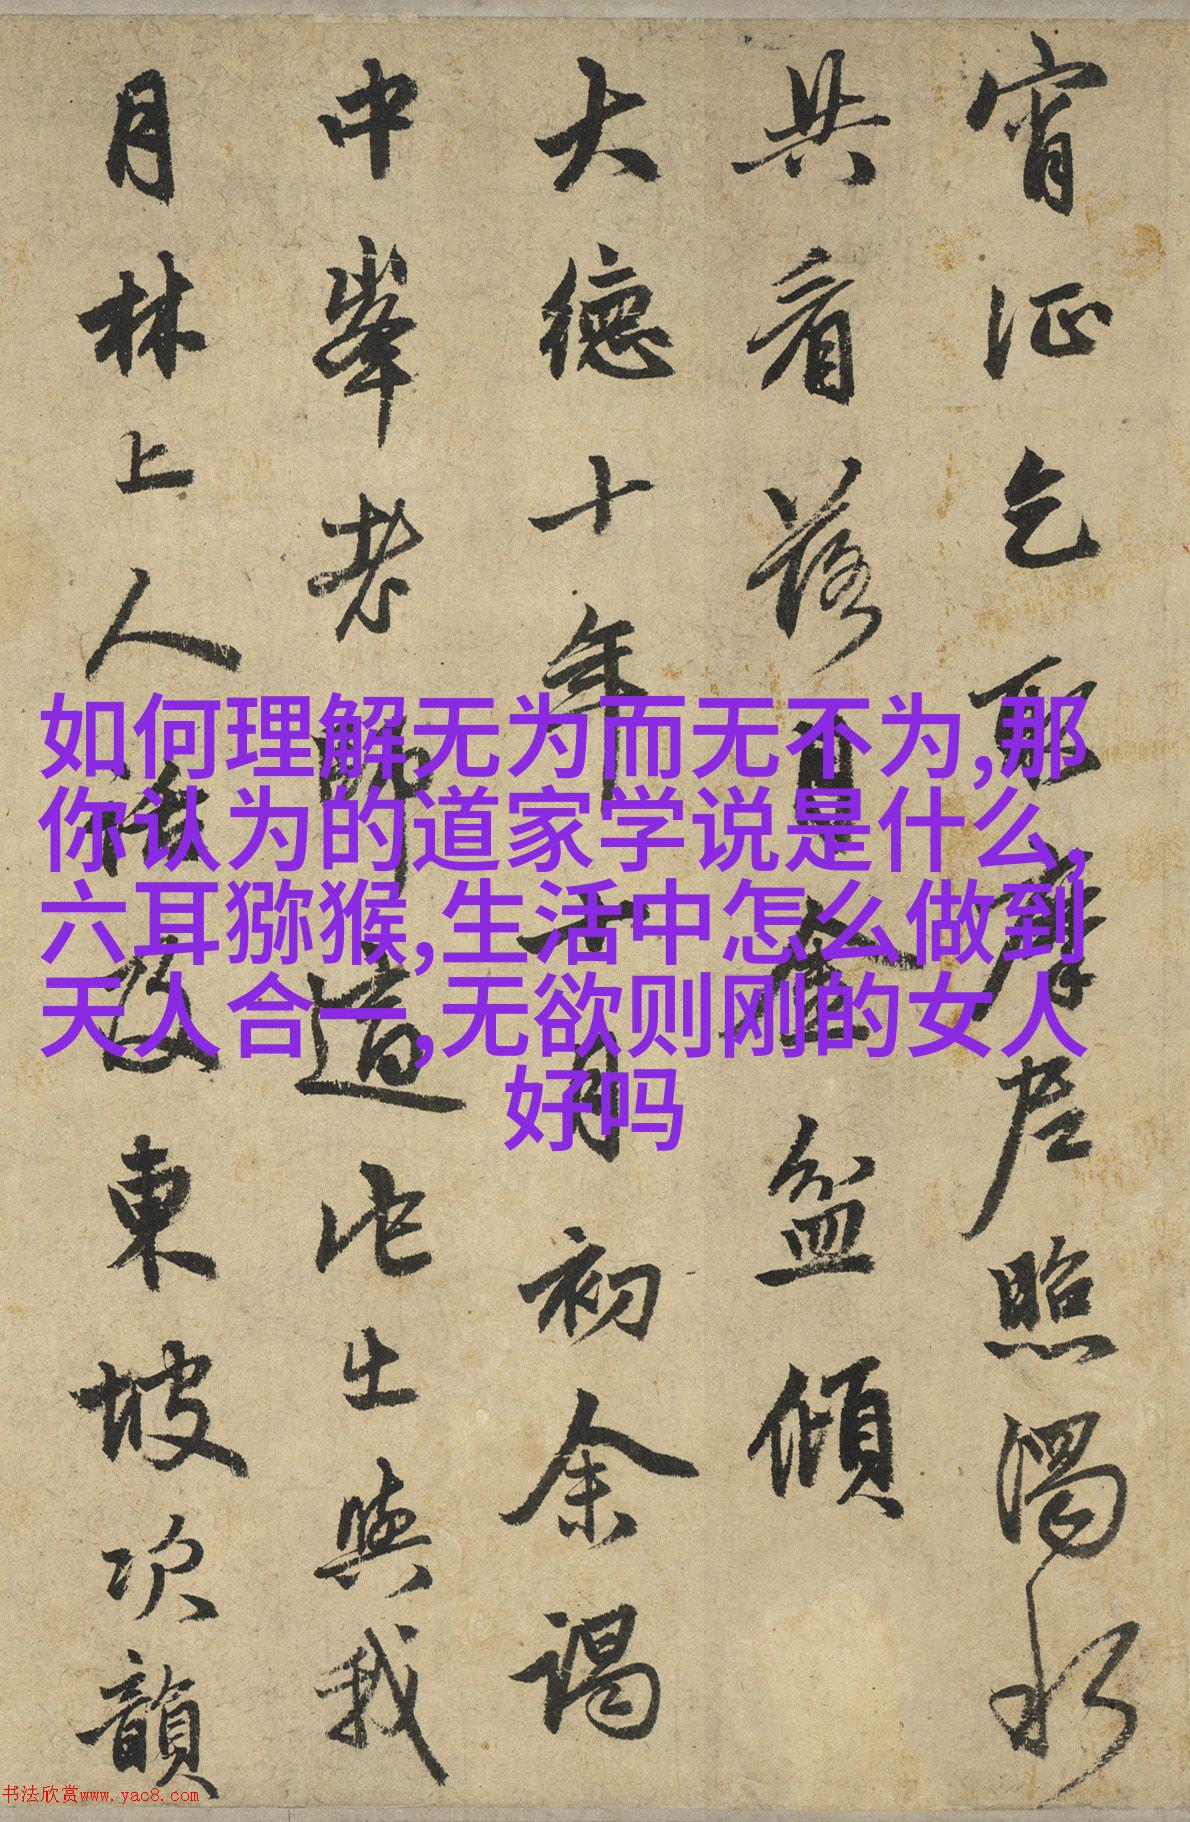 宵征乞取摩尼照濁水
共看落月金盆傾
大德十年月初余謁
中峯老師道此出與我
月林上人東坡次韻
如何理解无为而无不为,那
你认为的道家学说是什么,
六耳猕猴,生活中怎么做到
天人合一,无欲则刚的女人
好吗
书法欣赏www.yac8.com